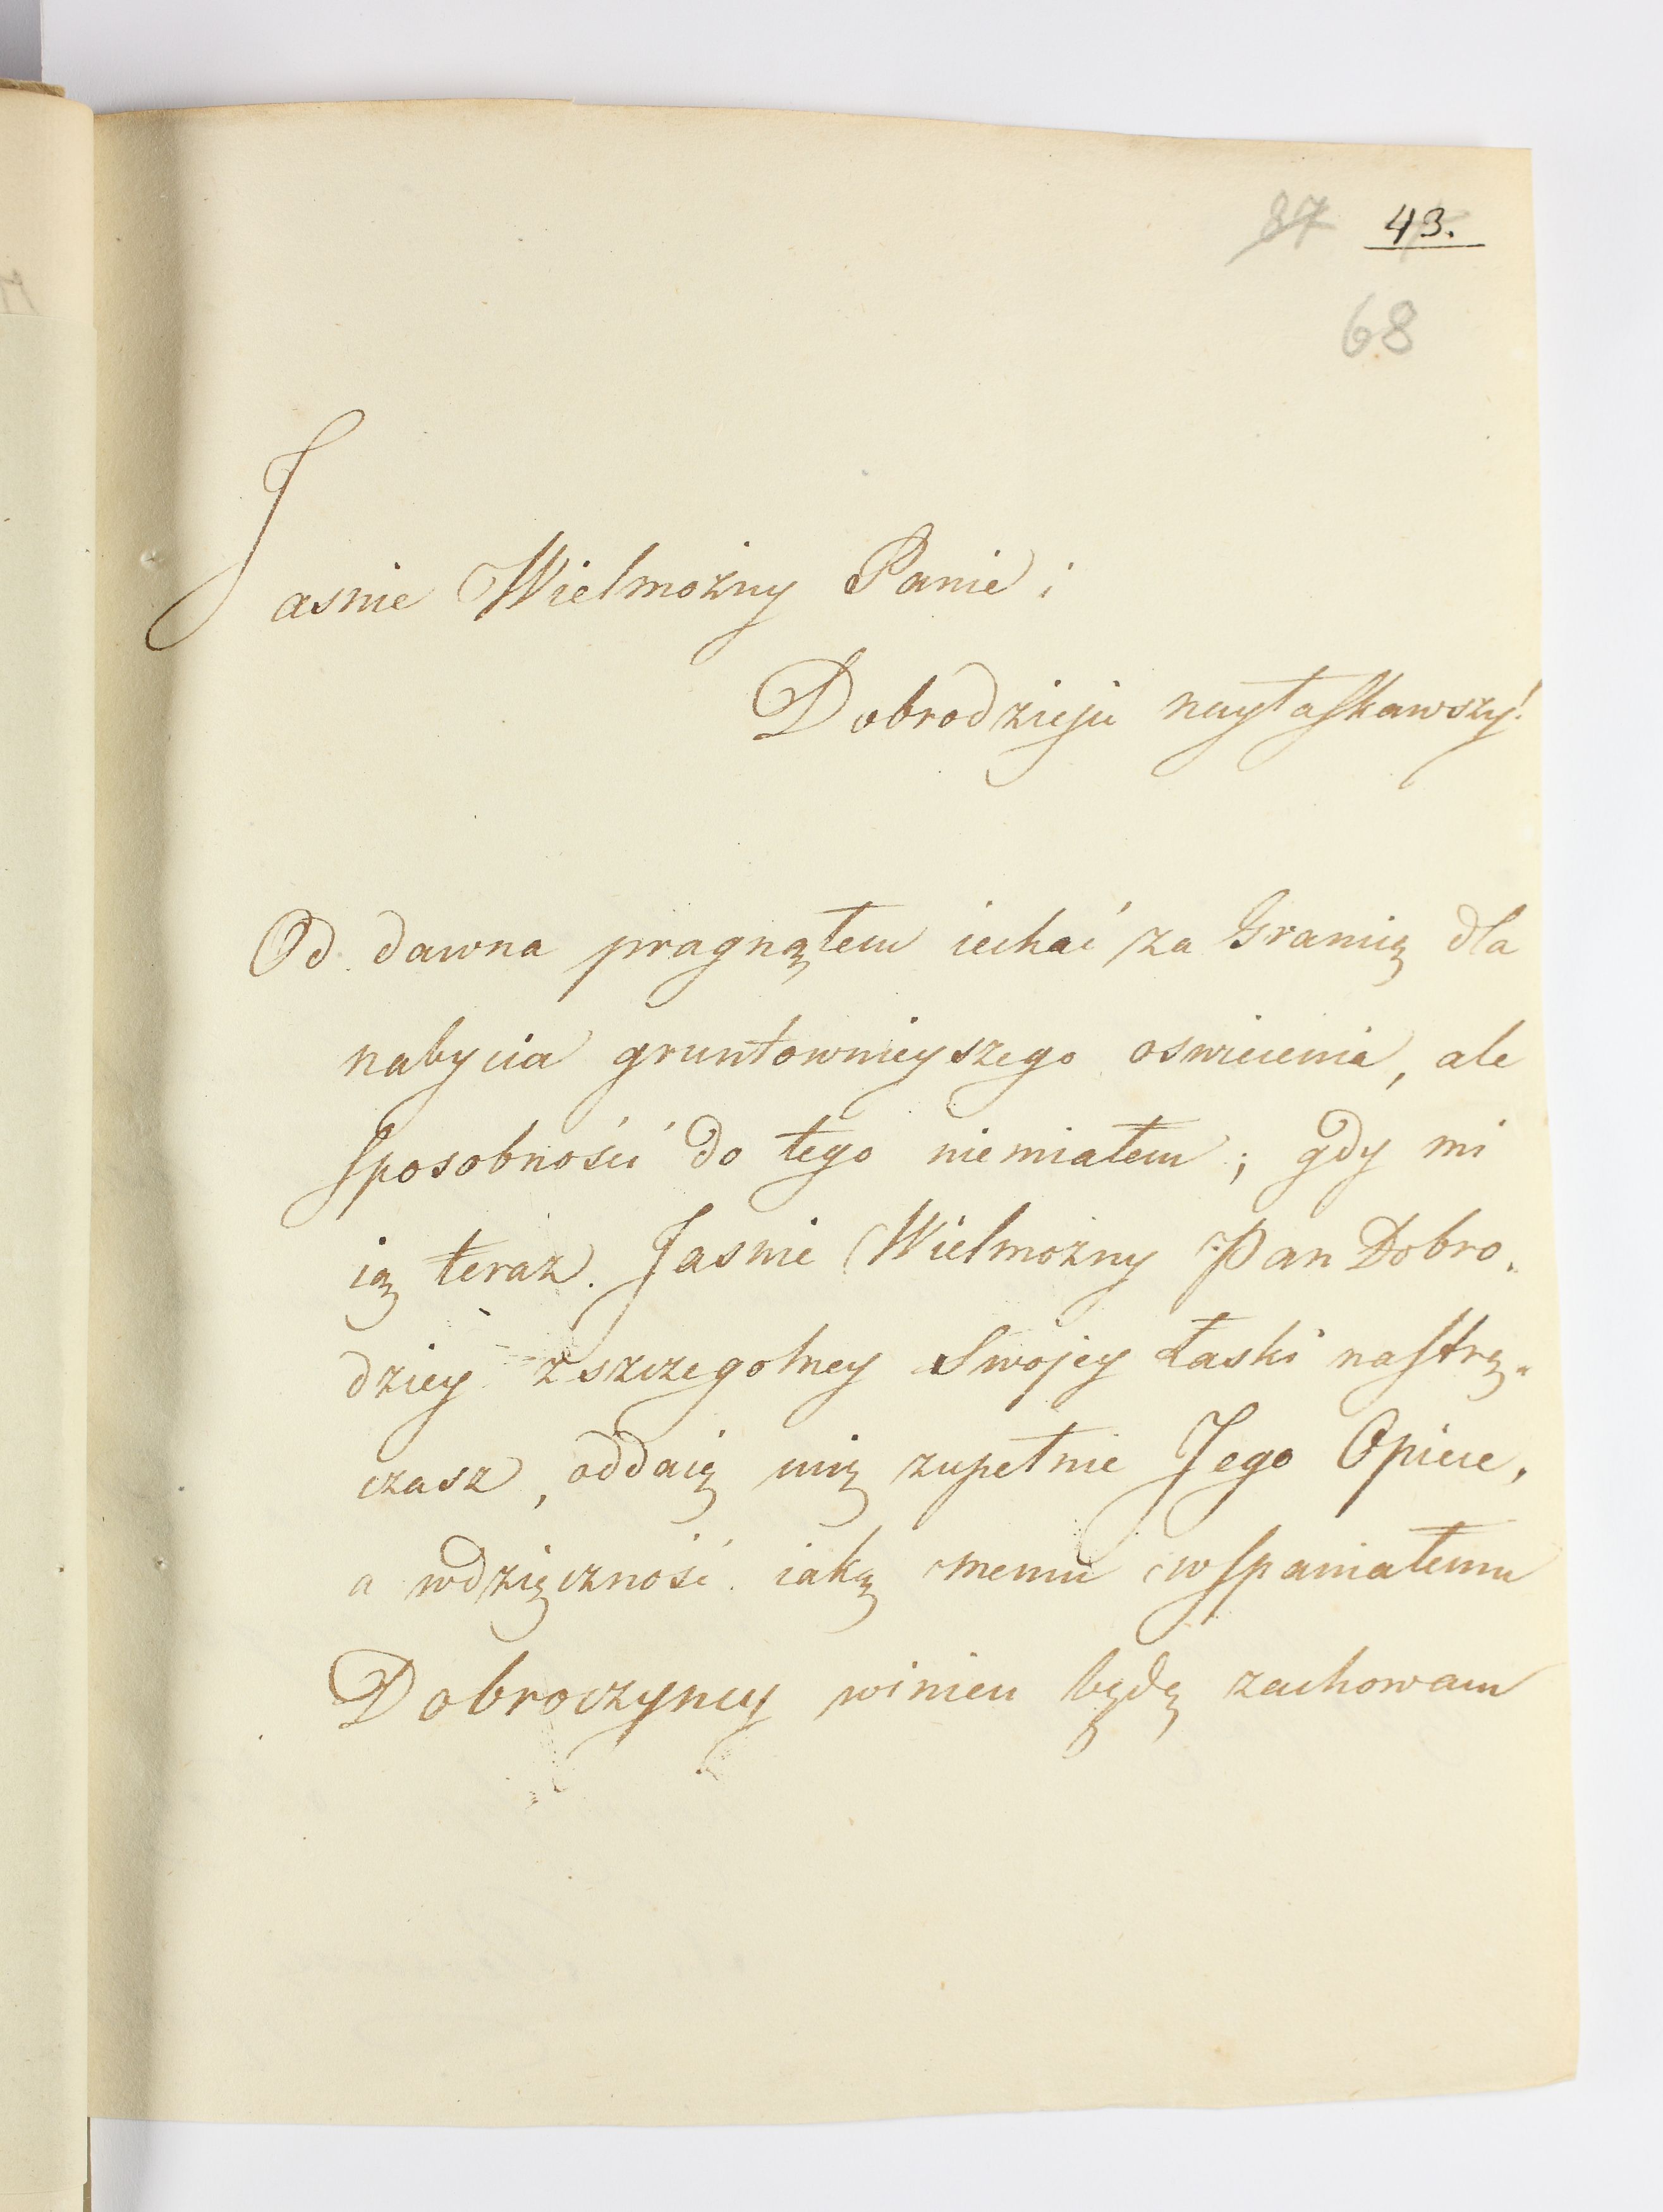 87 43.
68
Jasnie Wielmożny Panie i
Dobrodzieju nayłaskawszy!
Od dawna pragnąłem iechać za Granicę dla
nabycia gruntownieyszego oswiecenia, ale
sposobności do tego niemiałem; gdy mi
ią teraz Jasnie Wielmożny Pan Dobro„
dziey z szczegolney Swojey Łaski nastrę„
czasz, oddaię się zupełnie Jego Opiece,
a wdzięczność iaką memu wspaniałemu
Dobroczyncy winien będę zachowam